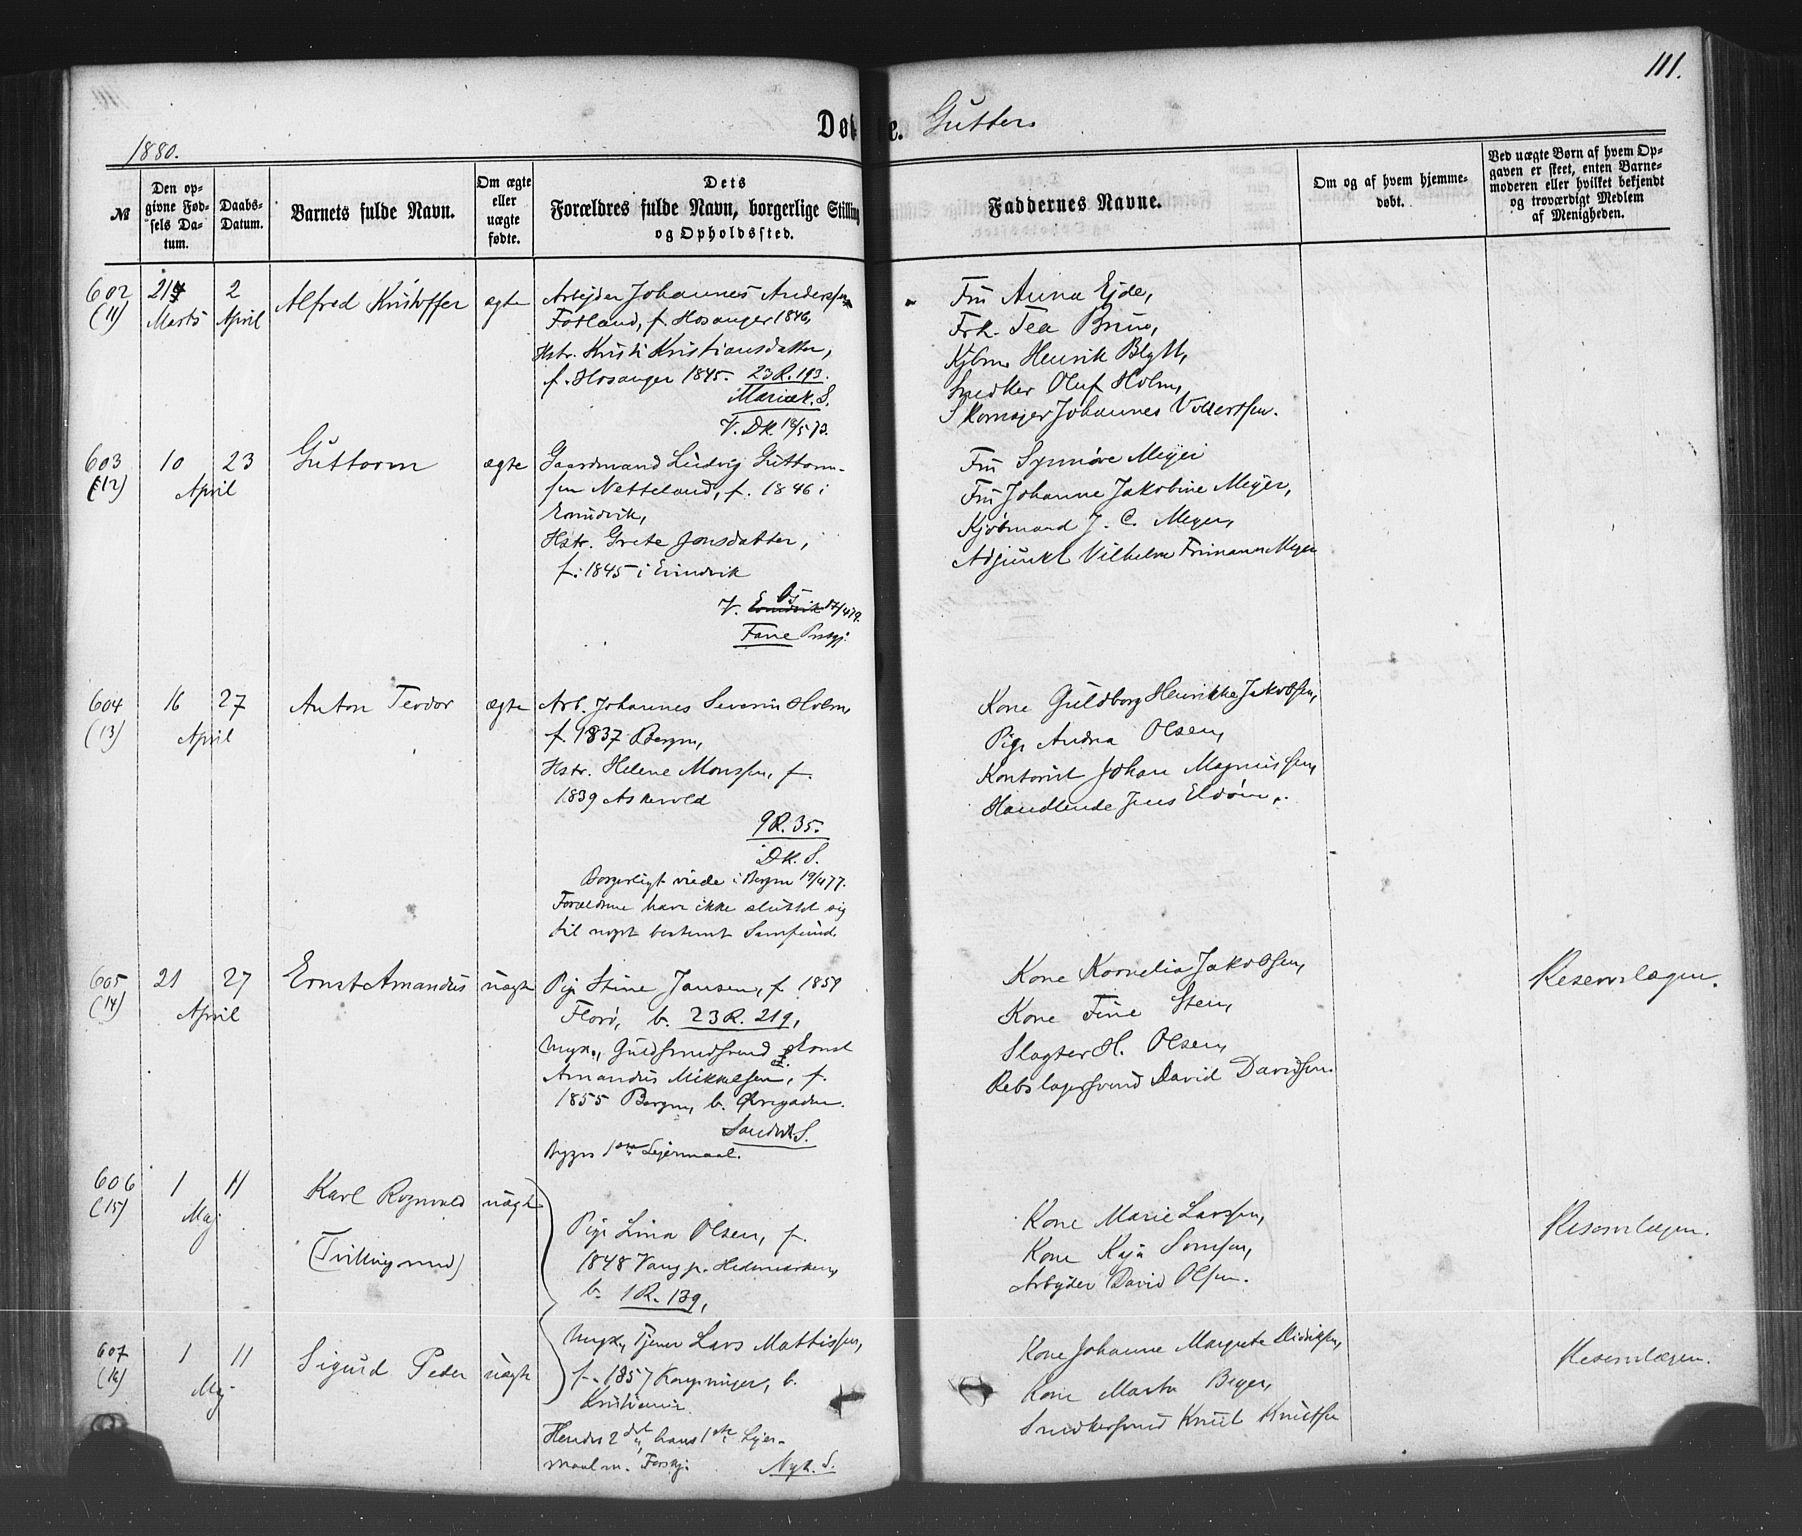 111.
Døbte. Gutter.
1880.
№
Den opgivne Fødsels Datum.
Daabs-Datum.
Barnets fulde Navn.
Om ægte eller uægte fødte.
Dets Forældres fulde Navn, borgerlige Stilling og Opholdssted.
Faddernes Navne.
Om og af hvem hjemmedøbt.
Ved uægte Børn af hvem Opgaven er skeet, enten Barnemoderen eller hvilket bekjendt og troværdigt Medlem af Menigheden.
602 (11)
21 Marts
2 April
Alfred Kristoffer
ægte
Arbejder Johannes Anderssen
Fotland, f. Hosanger 1846,
Hstr. Kristi Kristiansdatter,
f. Hosanger 1845. 23 R. 193.
Mariæk. S.
V. DK 18/5 73.
Fru Anna Ejde,
Frk. Tea Bruse,
Kjbm. Henrik Blytt,
Snedker Oluf Holm,
Skomager Johannes Vollertsen.
603 (12)
10 April
23
Guttorm
ægte
Gaardmand Ludvig Guttorm-
sen Netteland, f. 1846 i
Evindvik,
Hstr. Grete Jonsdatter,
f. 1845 i Evindvik
V. Evindvik 27/4 79.
Fane Prstgj.
Fru Synnøve Meyer
Fru Johanne Jakobine Meyer,
Kjøbmand J. C. Meyer,
Adjunkt Vilhelm Frimann Meyer
604 (13)
16 April
27
Anton Teodor
ægte
Arb. Johannes Severin Holm,
f. 1837 Bergen,
Hstr. Helene Monssen, f.
1839 Askevold
9 R. 35.
Dk. S.
Borgerligt viede i Bergen 19/4 77.
Forældrene have ikke sluttet sig
til noget bestemt Samfund.
Kone Guldborg Henrikke Jakobsen,
Pige Andrea Olsen,
Kontorist Johan Magnussen,
Handlende Jens Eldøen.
605 (14)
21 April
27
Ernst Amandus
uægte
Pige Stine Jansen, f. 1859
Florø, b. 23 R. 219,
Ungk., Guldsmedsvend Ernst
Amandus Mikkelsen, f.
1855 Bergen, b. Øvregaden.
Sandvk S.
Begges 1ste Lejermaal.
Kone Kornelia Jakobsen,
Kone Fine Sten,
Slagter H. Olsen,
Rebslagersvend David Davidsen
Reservelægen.
606 (15)
1 Maj
11
Karl Rognvald
(Tvilling med)
uægte
Pige Lina Olsen, f.
1848 Vang p. Hedemarken,
b. 1 R. 139,
Kone Marie Larssen,
Kone Kaja
Arbejder David Olsen.
Reservelægen.
607 (16)
1 Maj
11
Sigurd Peder
uægte
Ungk., Tjener Lars Mattissen,
f. 1857 Kongsvinger, b.
Kristiania
Hendes 2det, hans 1ste Lejer-
maal m. Forskj. Nyk. S.
Kone Johanne Margrete Didriksen,
Kone Marta Beyer,
Snedkersvend Knut Knutsen
Reservelægen.